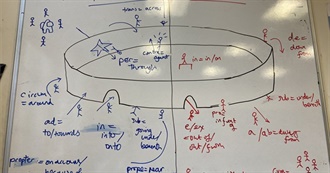 trans = across
contra =
against
per =
through
in = in/on
de =
down
from
circum
= around
sub = under/
beneath
ad =
to/towards
in =
into/
onto
sub =
going
under/
beneath
e/ex
= out of/
out/
prae
in front
of
a/ab = away
from
propter
= on account/
because of
prope = near